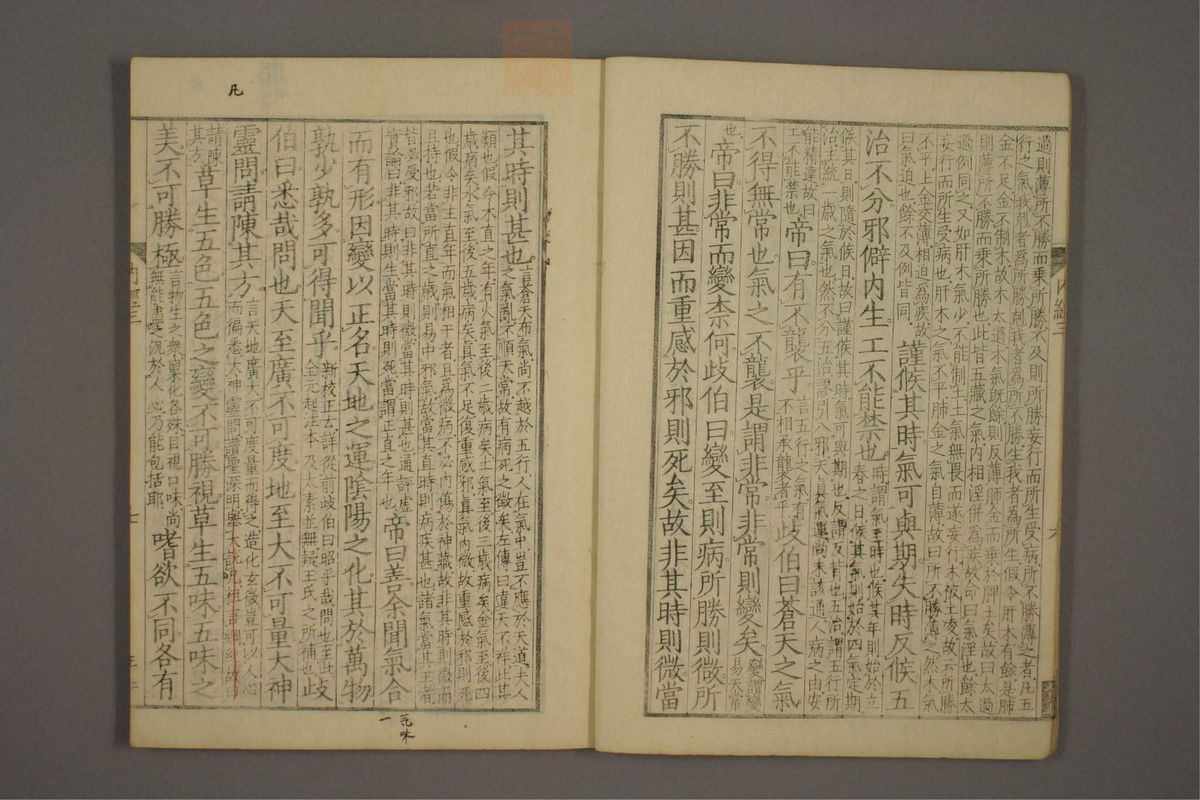 過則薄所不勝而乘所勝不及則所勝妄行而所生受病所不勝薄之者凡五
行之氣我剋者爲所勝剋我者爲所不勝生我者爲所生假令肝木有餘是肺
金不足金不制木故木太過木氣既餘則反薄肺金而乘於脾土矣故曰太過
則薄所不勝而乘所勝也此皆五藏之氣內相淫併爲疾故命曰氣淫也餘太
過例同之又如肝木氣少不能制土土氣無畏而遂妄行木被土凌故云所勝
妄行而所生受病也肝木之氣不平肺金之氣自薄故曰所不勝薄之然木氣
不平土金交薄相迫爲疾故
曰氣迫也餘不及例皆同
謹候其時氣可與期失時反候五
治不分邪僻內生工不能禁也
時謂氣至時也候其年則始於立
春之日候其氣則始於四氣定期
候其日則隨於候日故曰謹候其時氣可與期也反謂反背也五治謂五行所
治主統一歲之氣也然不分五治謬引八邪天眞氣運尚未該通人病之由安
能精達故曰
工不能禁也
帝曰有不襲乎
言五行之氣有
不相承襲者乎
岐伯曰蒼天之氣
不得無常也氣之不襲是謂非常非常則變矣
變謂變
易天常
也
帝曰非常而變柰何歧伯曰變至則病所勝則微所
不勝則甚因而重感於邪則死矣故非其時則微當
其時則甚也
言蒼天布氣尚不越於五行人在氣中豈不應於天道夫人
之氣亂不順天常故有病死之徵矣左傳曰違天不祥此其
類也假令木直之年有火氣至後二歲病矣土氣至後三歲病矣金氣至後四
歲病矣水氣至後五歲病矣眞氣不足復重感邪眞氣內微故重感於邪則死
也假令非王直年而氣相干者且爲微病不必內傷於神藏故非其時則微而
且持也若當所直之歲則易中邪氣故當其直時則病疾甚也諸氣當其王者
皆必受邪故曰非其時則微當其時則甚也通評虛
實論曰非其時則生當其時則死當謂正直之年也
帝曰善余聞氣合
而有形因變以正名天地之運陰陽之化其於萬物
孰少孰多可得聞乎
新校正云詳從前歧伯曰昭乎哉問也至此
全元起注本及太素並無疑王氏之所補也
歧
伯曰悉哉問也天至廣不可度地至大不可量大神
靈問請陳其方
言天地廣大不可度量而得之造化玄微豈可以人心
而徧悉大神靈問讚聖深明舉大說凡粗言綱紀故曰
請陳
其方
草生五色五色之變不可勝視草生五味五味之
美不可勝極
言物生之衆稟化各殊目視口味尚
無能盡之況於人心乃能包括耶
嗜欲不同各有
內經三
六
凡
氣味
一